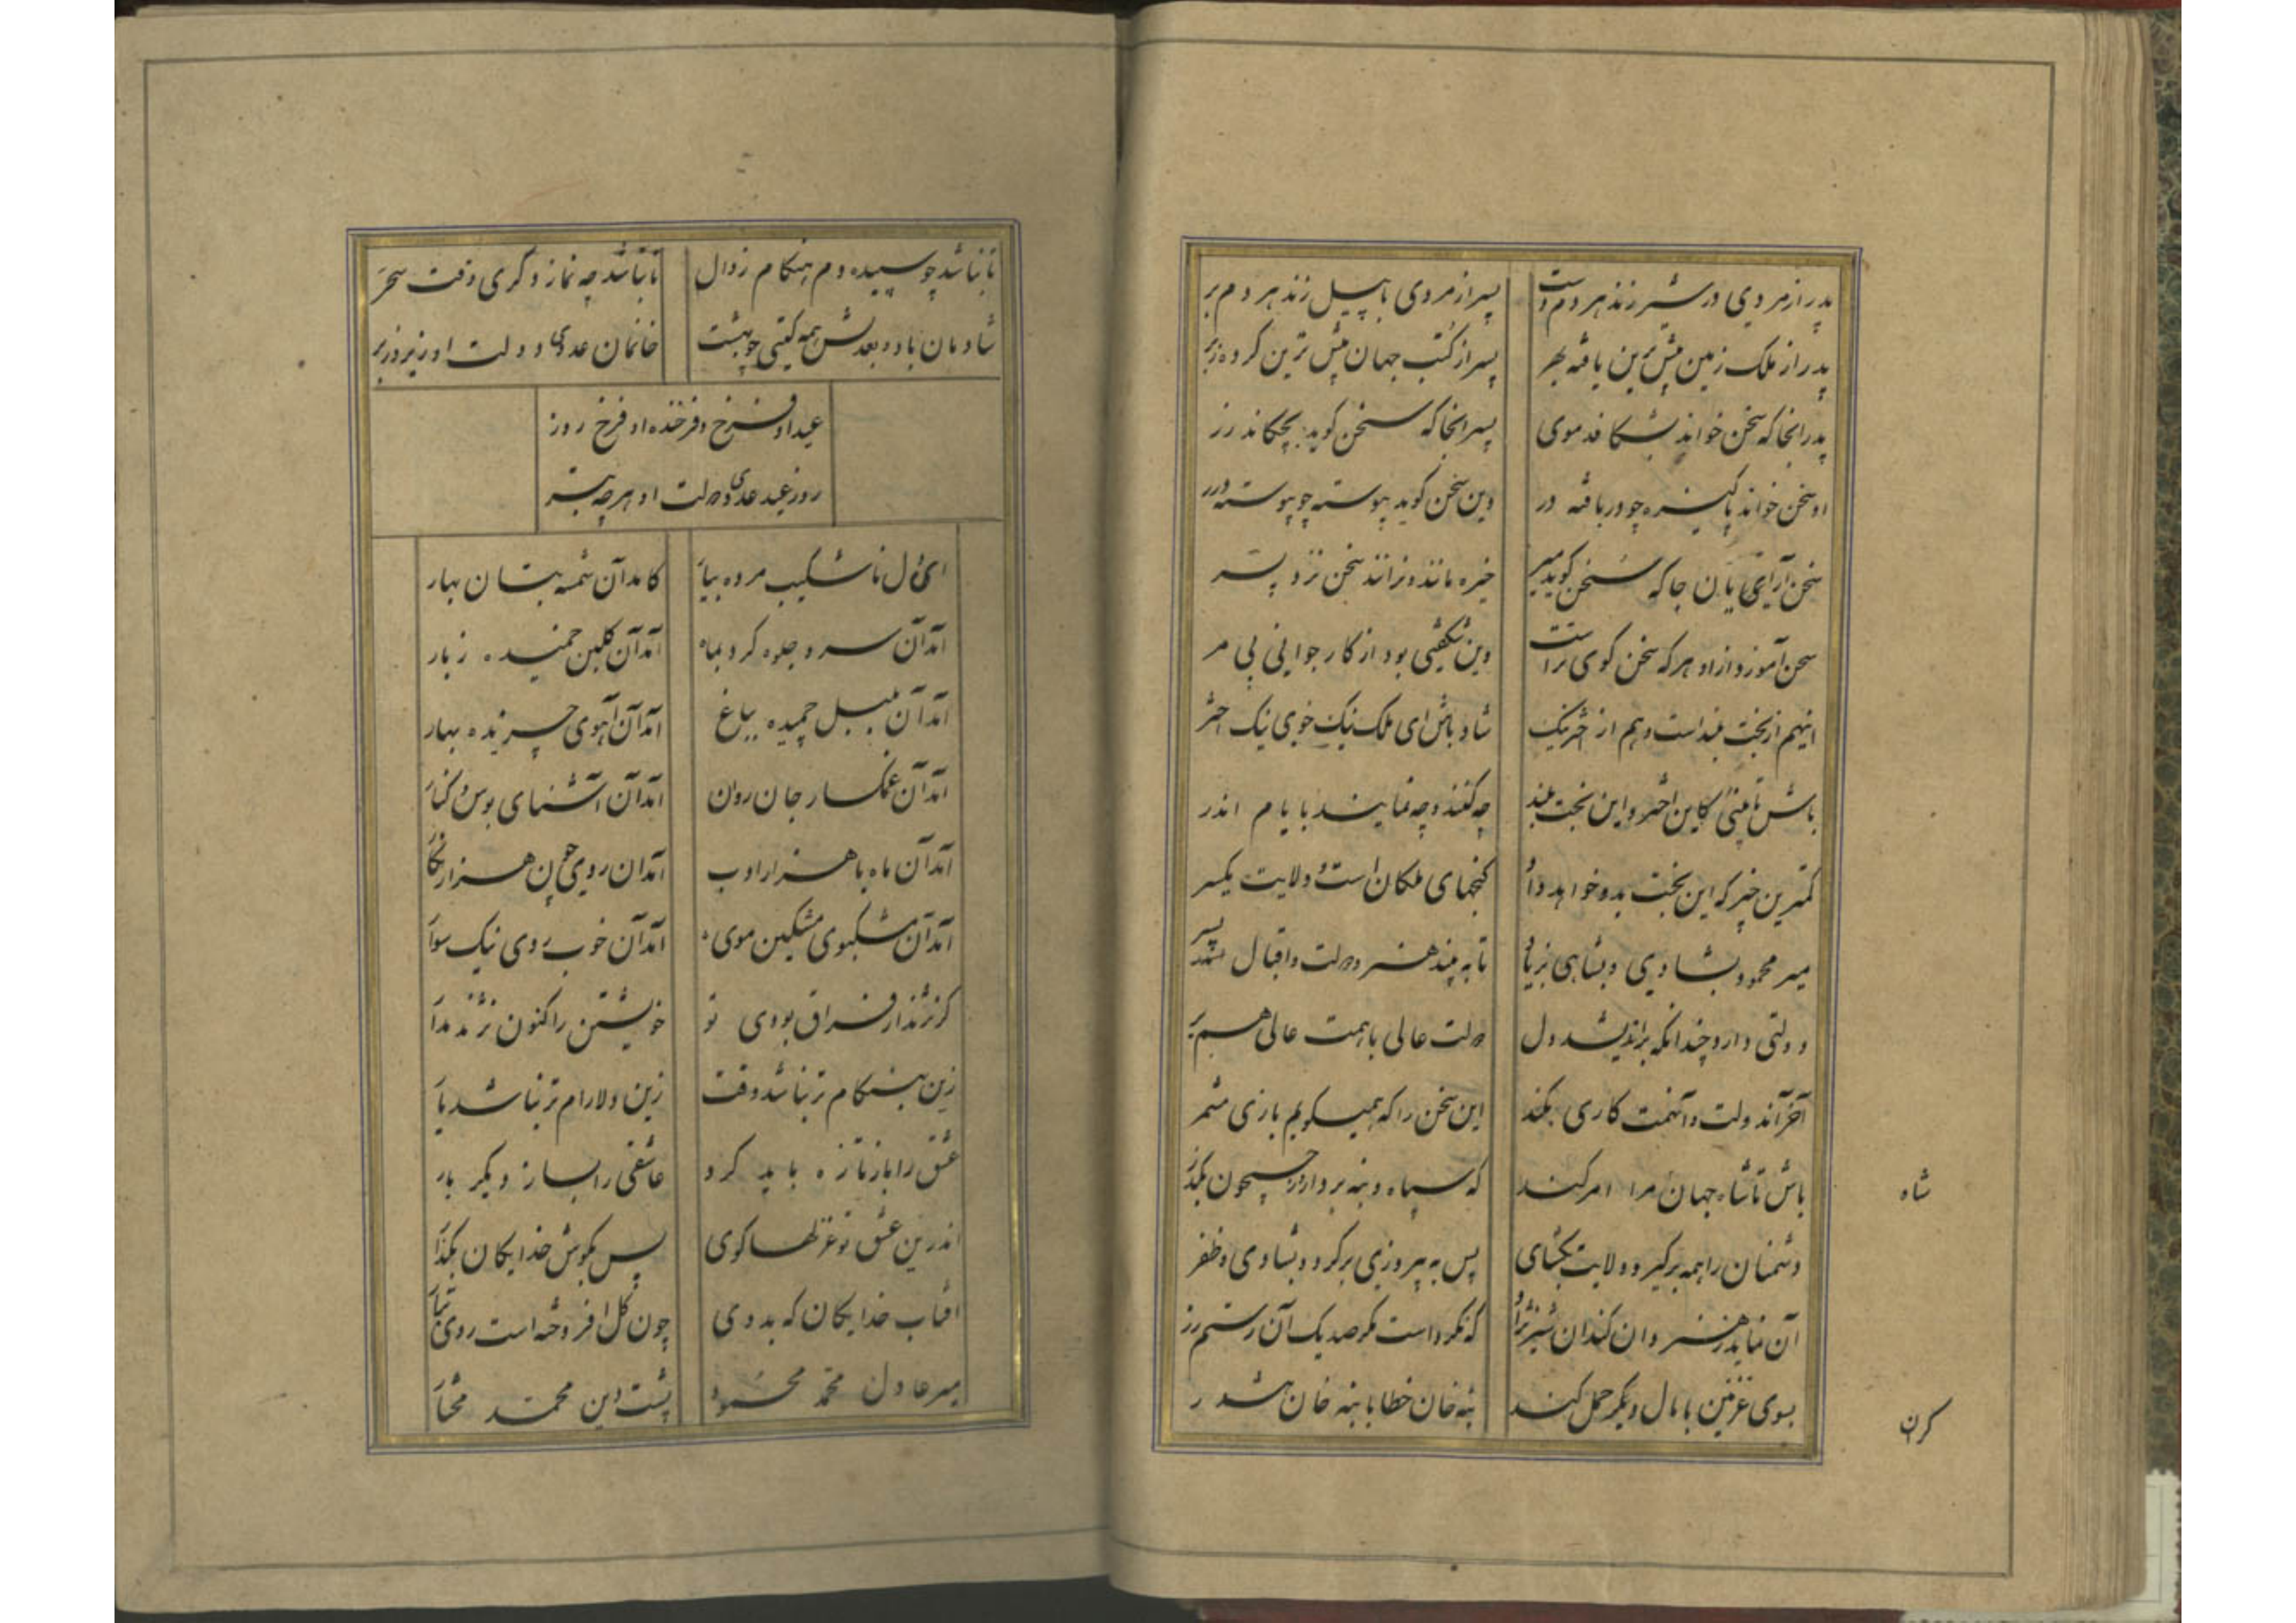 پدر از مردی در شیر زند هر دم دست
پسر از مردی با پیل زند هر دم بر
پدر از ملک زمین بیش ترین یافته بهر
پسر از کتب جهان بیش ترین کرده زبر
پدر انجا که سخن خواند بشکافد موی
پسر انجا که سخن گوید بچکاند زر
او سخن خواند پاکیزه چو دریافته در
وین سخن گوید پیوسته چو پیوسته درر
سخن آرای یان جا که سخن گوید میر
خیره ماند و نراند سخن نزد پسر
سخن آموزد ازاو هر که سخن گوی تراست
وین شگفتی بود از کار جوانی بی مر
اینهم از بخت بلند است و هم از اختر نیک
شاد باش ای ملک نیک خوی نیک اختر
باش تا بینی کاین اختر و این بخت بلند
چه کنند و چه نمایند بایام اندر
کمترین خیر که این بخت بدو خواهد داد
گنجهای ملکان است و ولایت یکسر
میر محمود بشادی و بشاهی بزیاد
تا به بیند هنر و دولت و اقبال پسر
دولتی دارد چندانکه براندیشد دل
دولت عالی با همت عالی همبر
آخر آن دولت و آن همت کاری بکند
این سخن را که همیگویم بازی مشمر
باش تا شاه جهان مرا امر کند
که سپاه و بنه بردار و ز جیحون بگذر
شاه
دشمنان را همه برگیر و ولایت بگشای
پس به پیروزی برگرد و بشادی و ظفر
آن نماید ز هنر وان کند آن شیر نژاد
که نکرداست مگر صد یک آن رستم زر
بسوی غزنین با مال دیگر حمل کند
بنه خان خطا با بنه خان
کرن
تا نباشد چو سپیده دم هنگام زوال
تا نباشد چه نماز دگری وقت سحر
شادمان باد و بعدلش همه گیتی چو بهشت
خانمان عدوی دولت او زیر و زبر
عید او فرخ و فرخنده او فرخ روز
روز عید عدوی دولت او هر چه بتر
ای دل ناشکیب مژده بیار
کامد آن شمسه بتان بهار
آمد آن سرو جلوه کرد بماه
آمد آن گلبن خمیده ز بار
آمد آن بلبل چمیده بباغ
آمد آن آهوی چریده بهار
آمد آن غمگسار جان روان
آمد آن آشنای بوس و کنار
آمد آن ماه با هزار ادب
آمد ان روی چون هزار نگار
آمد آن مشکبوی مشکین موی
آمد آن خوب روی نیک سوار
گر نژند از فراق بودی تو
خویشتن را کنون نژند مدار
زین بهنگام تر نباشد وقت
زین دلارام تر نباشد یار
عشق را باز تازه باید کرد
عاشقی را بساز دیگر بار
اندرین عشق نو غزلها گوی
پس بگوش خدایگان بگذار
افتاب خدایگان که بدوی
چون گل افروخته است روی تبار
میر عادل محمد محمود
پشت دین محمد مختار